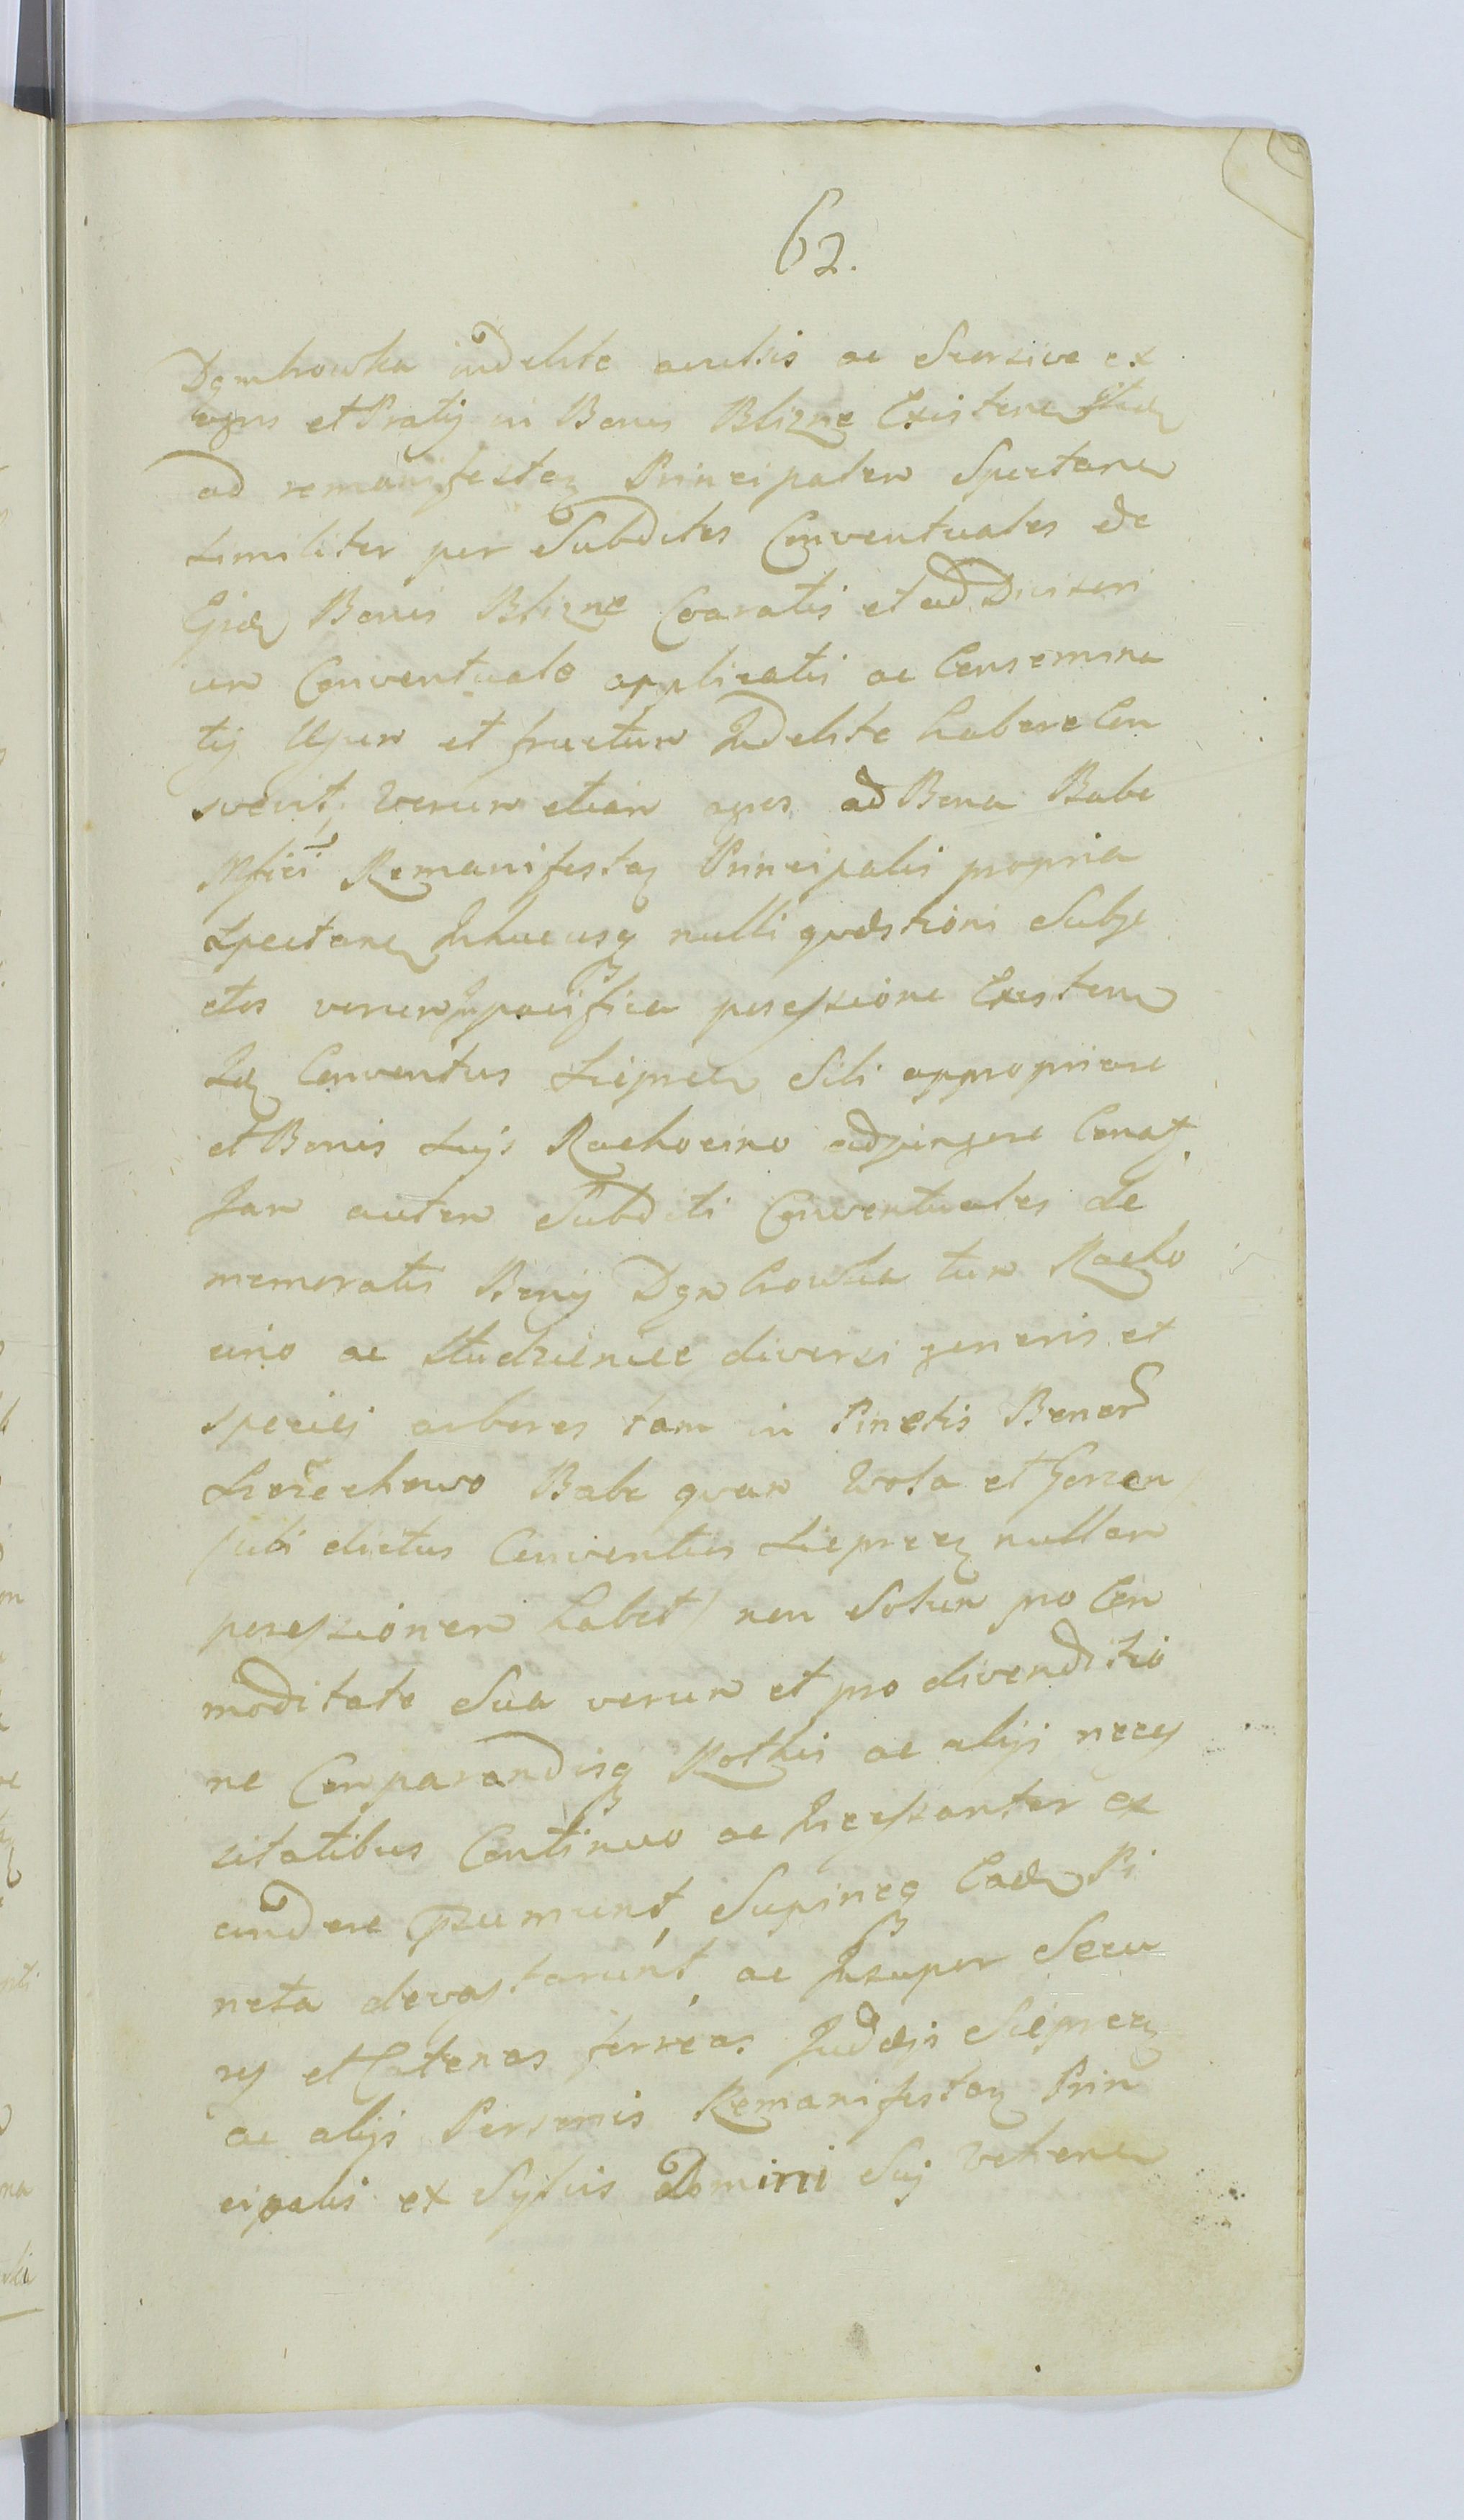 62.
Dąmbrowka indebite avulsis ac Seorsive ex
agris et Pratis in Bonis Blizne Existen
ad remanifestan Principalem Spectan
Similiter per Subditos Conventuales de
Ijsd Bonis Blizne Coaratis et ad Divisori
um Conventuale applicatis ac Consemina
tis Usum et fructum Indebite habere Con
svevit, verum etiam agros ad Bona Babe
Mfici Remanifestan Principalis propria
Spectan huhucusq nulli qvæstioni Subje
ctos verum pacifica possessione Existen
Id Conventus Sieprcen Sibi appropriare
et Bonis Suis Rachocino adjungere Conat.
Jam autem Subditi Conventuales de
memoratis Bonis Dąmbrowka tum Racho
cino ac Studzieniec diversi generis et
speciei arbores tam in Pinetis Bonor
Szczechowo Babe qvam Wola et Gorzen
/ubi dictus Conventus Sieprcen nullam
possessionem habet/ non Solum pro Com
moditate Sua verum et pro divenditio
ne Comparandisq Rothis ac alijs neces
sitatibus Continuo ac Incessanter ex
cindere psumunt, Supineq Eadem Pi
neta devastarunt, ac Insuper Secu
res et Catenas ferreas Judæis Sieprcen
ac alijs Personis Remanifestan Prin
cipalis ex Sylvis Domini Sui vehen